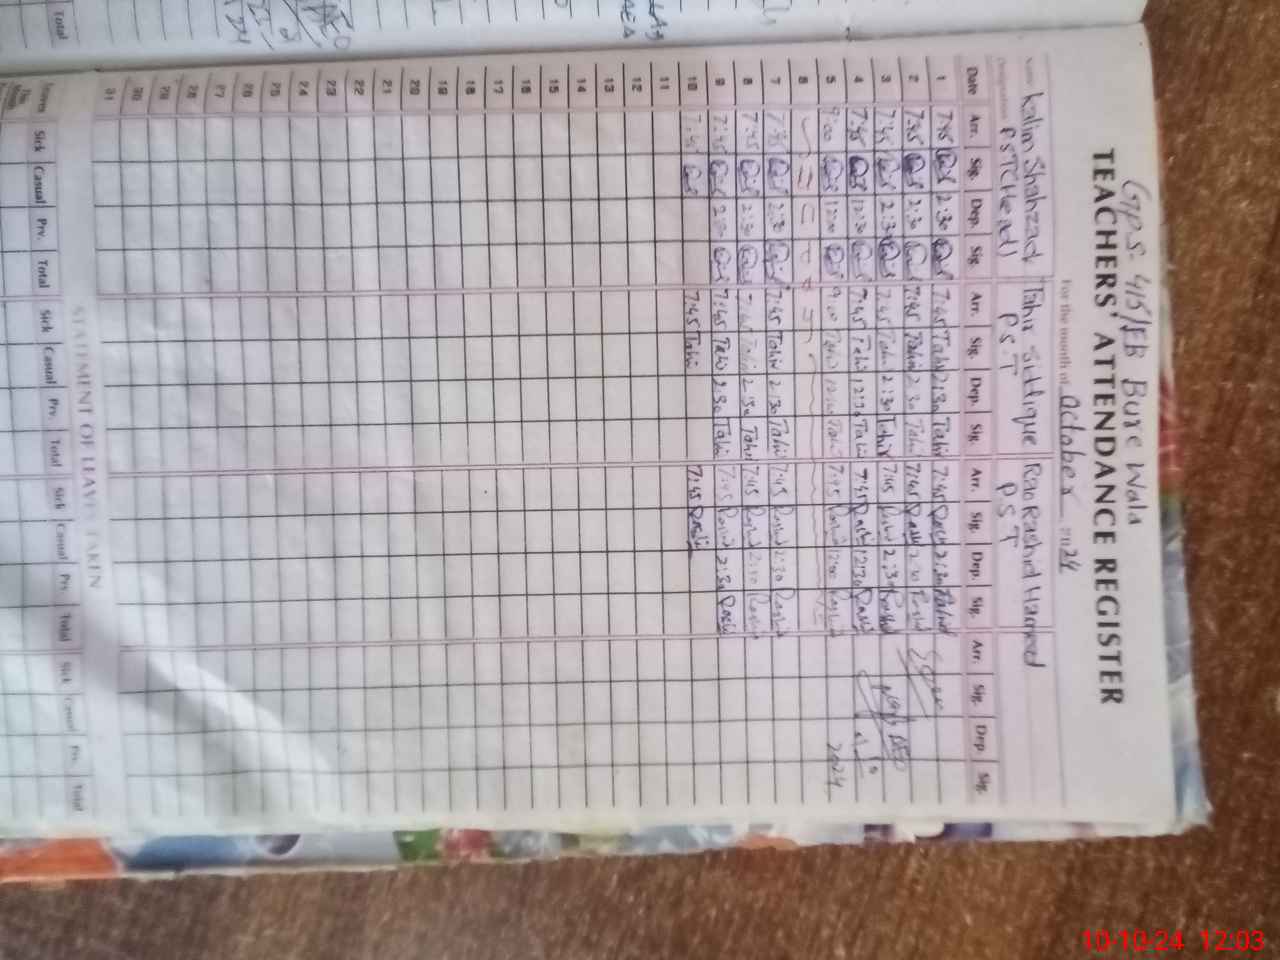 G.P.S. 415/EB Bure Wala
TEACHERS' ATTENDANCE REGISTER
For the month of October 2024
Name Kalim Shahzad Tahir Siddique Rao Rashid Hameed
Designation PST(Head) P.S.T P.S.T
Date Arr. Sig. Dep. Sig. Arr. Sig. Dep. Sig. Arr. Sig. Dep. Sig. Arr. Sig. Dep. Sig.
1 7:45 2:30 7:45 Tahir 2:30 Tahir 7:45 Rashid 2:30 Rashid
2 7:45 2:30 7:45 Tahir 2:30 Tahir 7:45 Rashid 2:30 Rashid
3 7:45 2:30 7:45 Tahir 2:30 Tahir 7:45 Rashid 2:30 Rashid
4 7:45 12:30 7:45 Tahir 12:30 Tahir 7:45 Rashid 12:30 Rashid
5 9:00 12:00 9:00 Tahir 12:00 Tahir 7:45 Rashid 12:00 Rashid 2024
6
7 7:45 2:30 7:45 Tahir 2:30 Tahir 7:45 Rashid 2:30 Rashid
8 7:45 2:30 7:45 Tahir 2:30 Tahir 7:45 Rashid 2:30 Rashid
9 7:45 2:30 7:45 Tahir 2:30 Tahir 7:45 Rashid 2:30 Rashid
10 7:45 7:45 Tahir 7:45 Rashid
11
12
13
14
15
16
17
18
19
20
21
22
23
24
25
26
27
28
29
30
31
STATEMENT OF LEAVES TAKEN
Leaves Sick Casual Prv. Total Sick Casual Prv. Total Sick Casual Prv. Total Sick Casual Prv. Total
This Month
Total
10-10-24 12:03